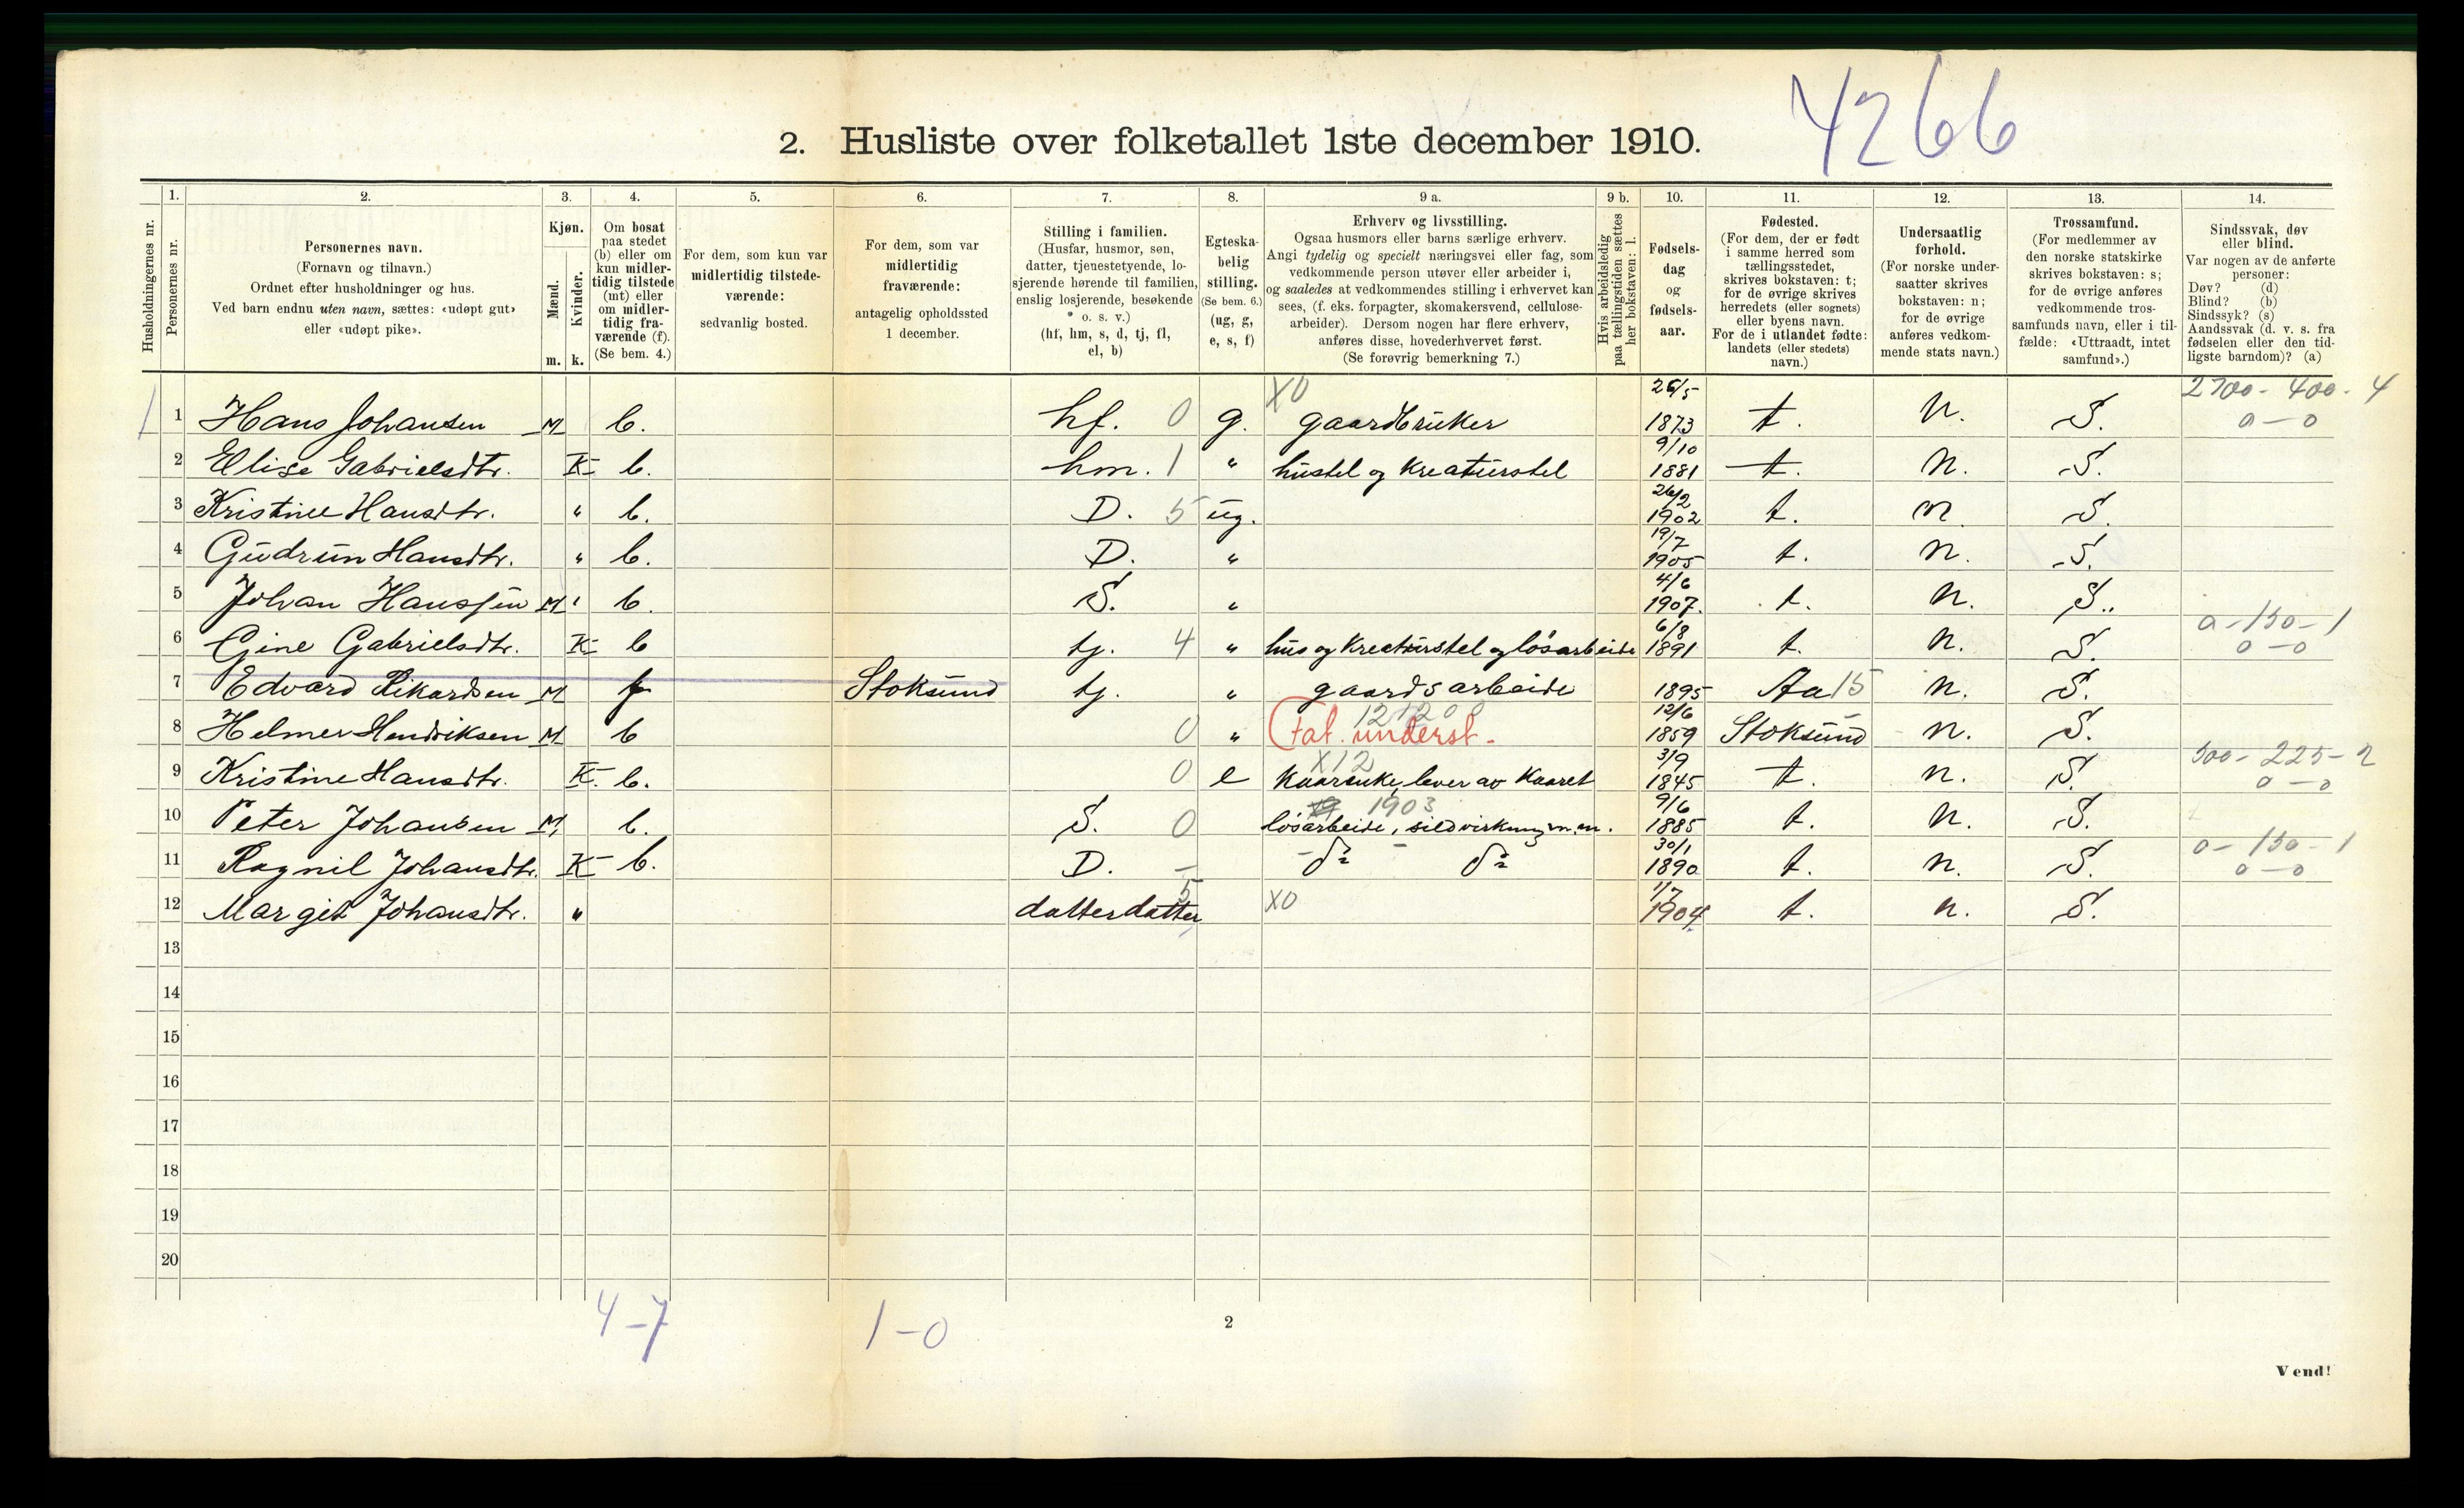 4266
2. Husliste over folketallet 1ste december 1910.
1. 2. 3. 4. 5. 6. 7. 8. 9 a. 9 b. 10. 11. 12. 13. 14.
Husholdningernes nr.
Personernes nr.
Personernes navn.
(Fornavn og tilnavn.)
Ordnet efter husholdninger og hus.
Ved barn endnu uten navn, sættes: «udøpt gut»
eller «udøpt pike».
Kjøn.
Mænd.
Kvinder.
m. k.
Om bosat
paa stedet
(b) eller om
kun midler-
tidig tilstede
(mt) eller
om midler-
tidig fra-
værende (f).
(Se bem. 4.)
For dem, som kun var
midlertidig tilstede-
værende:
sedvanlig bosted.
For dem, som var
midlertidig
fraværende:
antagelig opholdssted
1 december.
Stilling i familien.
(Husfar, husmor, søn,
datter, tjenestetyende, lo-
sjerende hørende til familien,
enslig losjerende, besøkende
o. s. v.)
(hf, hm, s, d, tj, fl,
el, b)
Egteska-
belig
stilling.
(Se bem. 6.)
(ug, g,
e, s, f)
Erhverv og livsstilling.
Ogsaa husmors eller barns særlige erhverv.
Angi tydelig og specielt næringsvei eller fag, som
vedkommende person utøver eller arbeider i,
og saaledes at vedkommendes stilling i erhvervet kan
sees, (f. eks. forpagter, skomakersvend, cellulose-
arbeider). Dersom nogen har flere erhverv,
anføres disse, hovederhvervet først.
(Se forøvrig bemerkning 7.)
Hvis arbeidsledig
paa tællingstiden sættes
her bokstaven: l.
Fødsels-
dag
og
fødsels-
aar.
Fødested.
(For dem, der er født
i samme herred som
tællingsstedet,
skrives bokstaven: t;
for de øvrige skrives
herredets (eller sognets)
eller byens navn.
For de i utlandet fødte:
landets (eller stedets)
navn.)
Undersaatlig
forhold.
(For norske under-
saatter skrives
bokstaven: n;
for de øvrige
anføres vedkom-
mende stats navn.)
Trossamfund.
(For medlemmer av
den norske statskirke
skrives bokstaven: s;
for de øvrige anføres
vedkommende tros-
samfunds navn, eller i til-
fælde: «Uttraadt, intet
samfund».)
Sindssvak, døv
eller blind.
Var nogen av de anførte
personer:
Døv? (d)
Blind? (b)
Sindssyk? (s)
Aandssvak (d. v. s. fra
fødselen eller den tid-
ligste barndom)? (a)
X0 26/5 2700 - 400 - 4
1 1 Hans Johansen M b. hf. 0 g. gaardbruker 1873 t. n. S. 0 - 0
2 Elise Gabrielsdtr. K b. hm. 1 " hustel og kreaturstel 9/10 1881 t. n. S.
3 Kristine Hansdtr. " b. D. 5 ug. 26/2 1902 t. n. S.
4 Gudrun Hansdtr. " b. D. " 19/7 1905 t. n. S.
5 Johan Hanssen M " b. S. " 4/6 1907. t. n. S.
0 - 130 - 1
6 Gine Gabrielsdtr. K b tj. 4 " hus og kreaturstel og løsarbeide 6/8 1891 t. n. S. 0 - 0
7 Edvard Rikardsen M f Stoksund tj. " gaardsarbeide 1895 Aa 15 n. S.
8 Helmer Hendriksen M b 0 " Fat. underst. 12/6 1859 Stoksund n. S.
X12 300 - 225 - 2
9 Kristine Hansdtr. K. b. 0 e Kaarenke, lever av Kaaret 3/9 1845 t. n. S. 0 - 0
1903
10 Peter Johansen M, b. S. 0 løsarbeide, sildvirkning m.m. 9/6 1885 t. n. S.
0 - 130 - 1
11 Ragnil Johansdtr. K b. D. - do do 30/1 1890 t. n. S. 0 - 0
12 Margit Johansdtr. " datterdatter 5 X0 1/7 1904 t. n. S.
13
14
15
16
17
18
19
20
4-7 1-0
2
Vend!